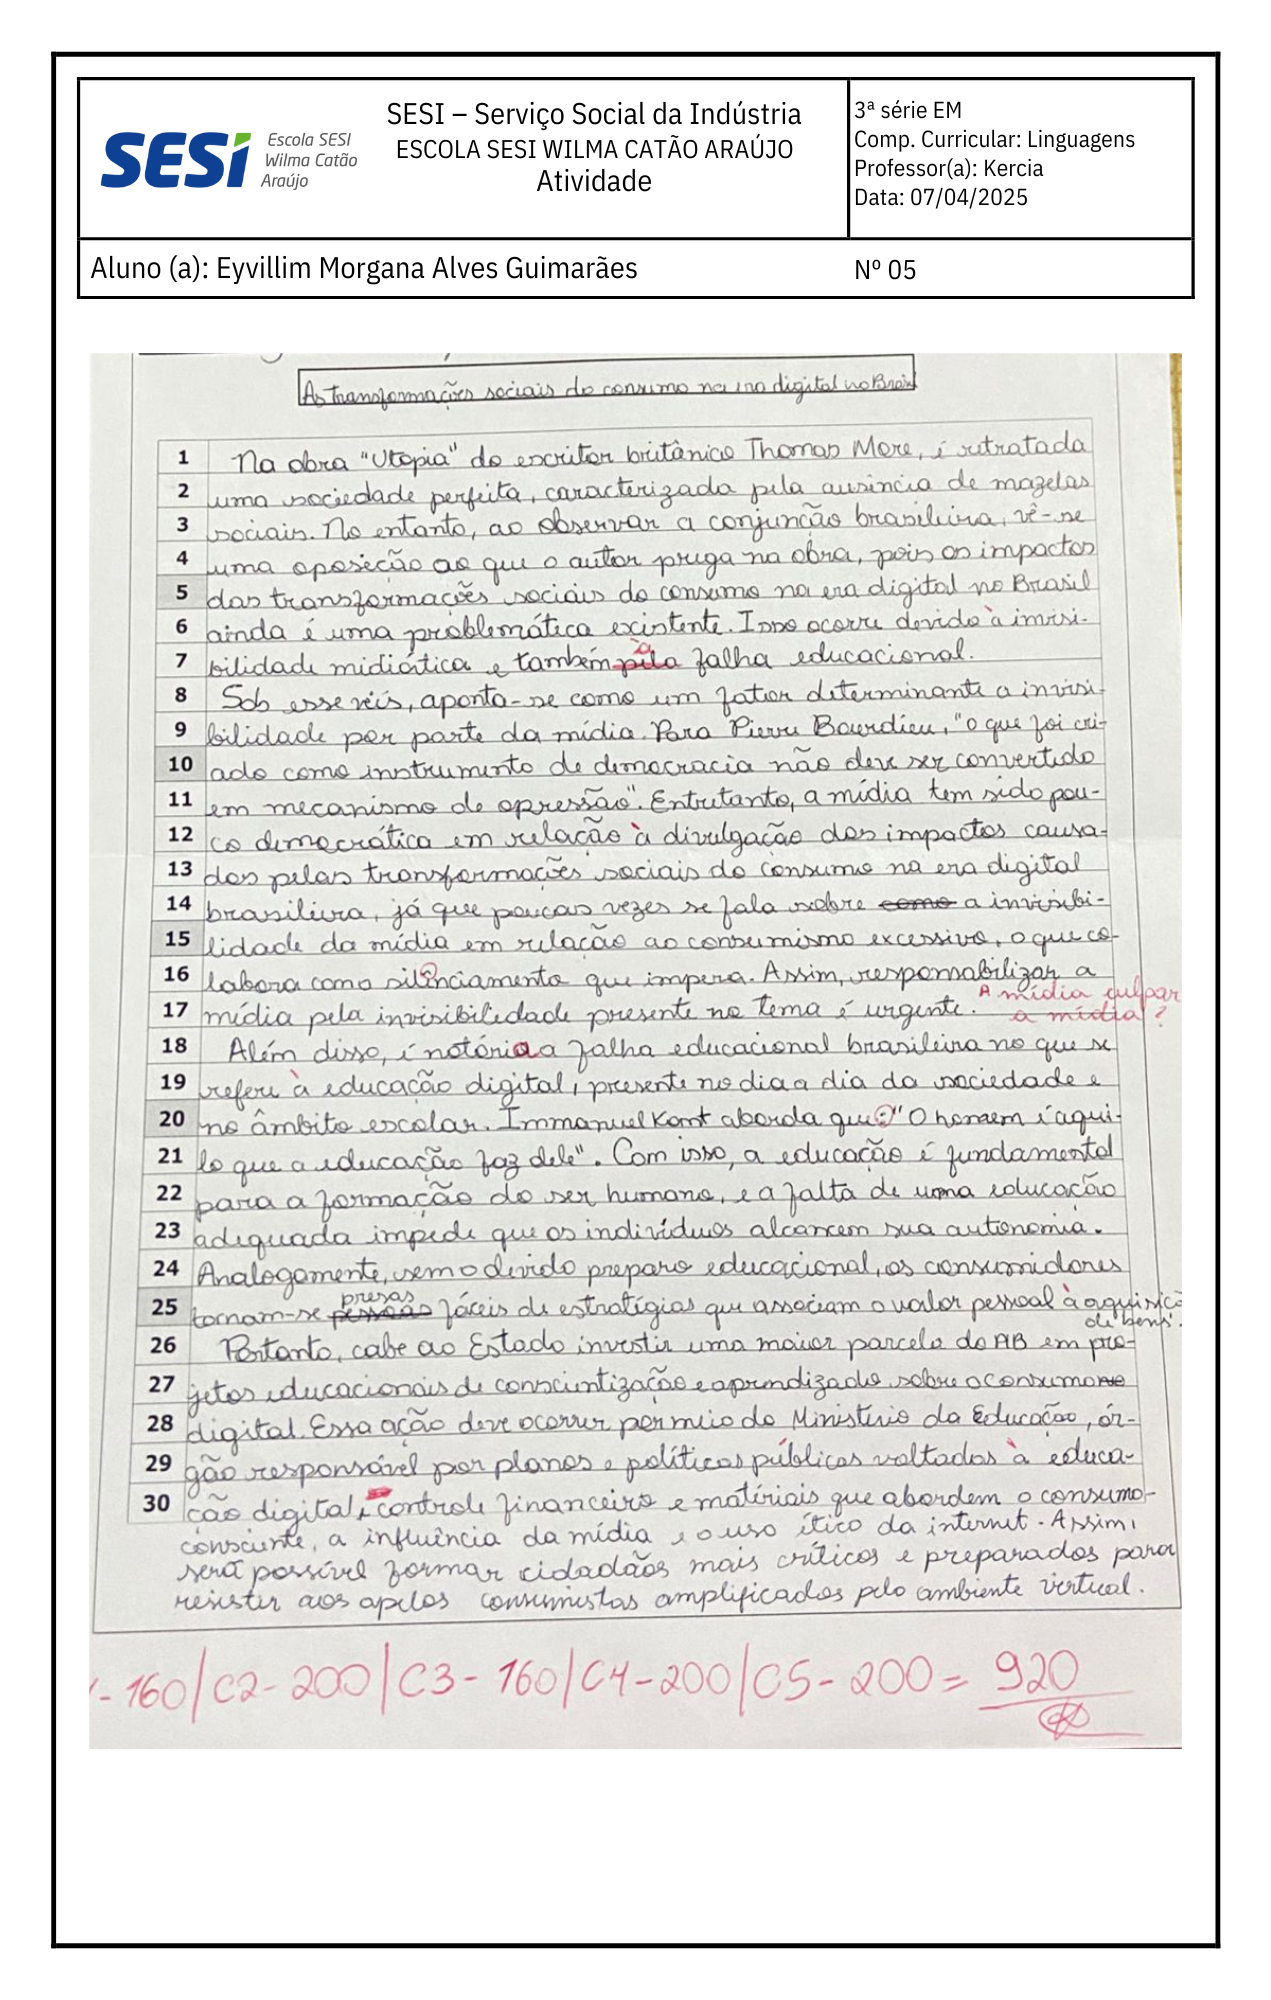 SESI
Escola SESI
Wilma Catão
Araújo
SESI – Serviço Social da Indústria
ESCOLA SESI WILMA CATÃO ARAÚJO
Atividade
3ª série EM
Comp. Curricular: Linguagens
Professor(a): Kercia
Data: 07/04/2025
Aluno (a): Eyvillim Morgana Alves Guimarães
Nº 05
As transformações sociais do consumo na era digital no Brasil
1 Na obra "Utopia" do escritor britânico Thomas More, é retratada
2 uma sociedade perfeita, caracterizada pela ausência de mazelas
3 sociais. No entanto, ao observar a conjunção brasileira, vê-se
4 uma oposição ao que o autor prega na obra, pois os impactos
5 das transformações sociais do consumo na era digital no Brasil
6 ainda é uma problemática existente. Isso ocorre devido à invisi-
7 bilidade midiática e também pela à falha educacional.
8 Sob esse viés, aponta-se como um fator determinante a invisi-
9 bilidade por parte da mídia. Para Pierre Bourdieu, "o que foi cri-
10 ado como instrumento de democracia não deve ser convertido
11 em mecanismo de opressão". Entretanto, a mídia tem sido pou-
12 co democrática em relação à divulgação dos impactos causa-
13 dos pelas transformações sociais do consumo na era digital
14 brasileira, já que poucas vezes se fala sobre como a invisibi-
15 lidade da mídia em relação ao consumismo excessivo, o que co-
16 labora como silenciamento que impera. Assim, responsabilizar a
17 mídia pela invisibilidade presente no tema é urgente. A mídia culpar
a mídia?
18 Além disso, é notória a falha educacional brasileira no que se
19 refere à educação digital, presente no dia a dia da sociedade e
20 no âmbito escolar. Immanuel Kant aborda que: "O homem é aqui-
21 lo que a educação faz dele". Com isso, a educação é fundamental
22 para a formação do ser humano, e a falta de uma educação
23 adequada impede que os indivíduos alcancem sua autonomia.
24 Analogamente, sem o devido preparo educacional, os consumidores
presas
25 tornam-se pessoas fáceis de estratégias que associam o valor pessoal à aquisição
de bens.
26 Portanto, cabe ao Estado investir uma maior parcela do PIB em pro-
27 jetos educacionais de conscientização e aprendizado sobre o consumo no
28 digital. Essa ação deve ocorrer por meio do Ministério da Educação, ór-
29 gão responsável por planos e políticas públicas voltadas à educa-
30 ção digital, controle financeiro e matériais que abordem o consumo
consciente, a influência da mídia e o uso ético da internet. Assim,
será possível formar cidadãos mais críticos e preparados para
resistir aos apelos consumistas amplificados pelo ambiente vertical.
-160/C2-200/C3-160/C4-200/C5-200=920